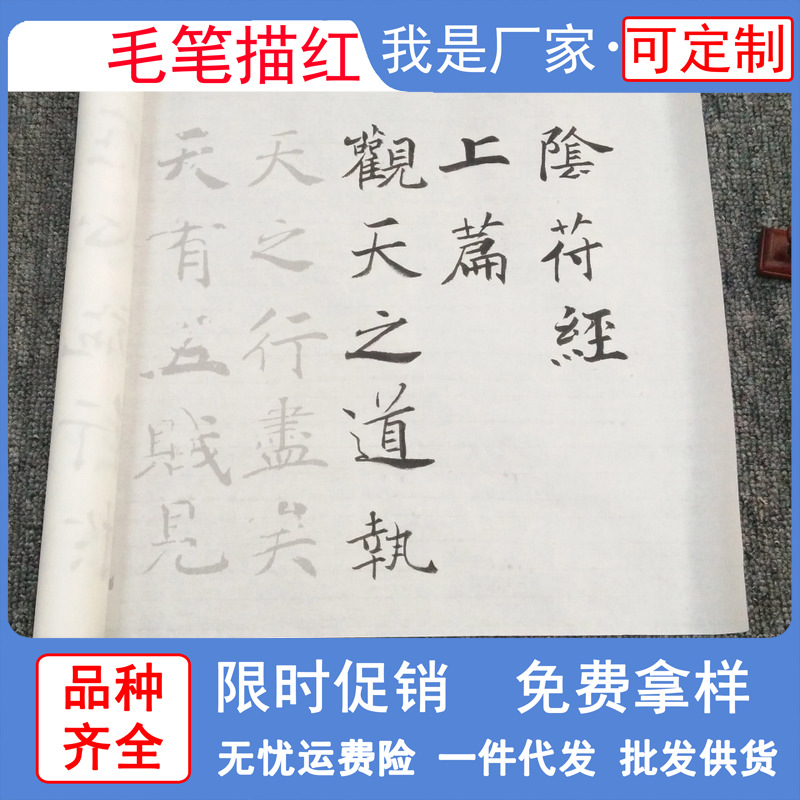 毛笔描红
我是厂家·
可定制
陰符經
上篇
觀天之道執
天之行盡矣
天有五賊見
品种
齐全
限时促销 免费拿样
无忧运费险 一件代发 批发供货